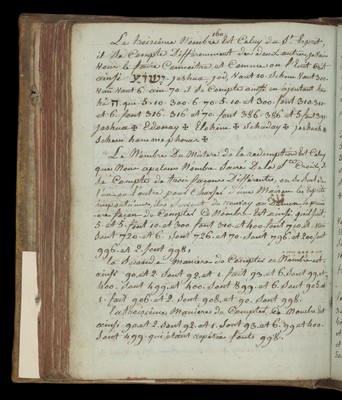 160
Le troisieme Nombre Est Celuy du St Esprit,
il Se Compte Differemment des deux autres, je vais
vous le faire Connoitre et Comme on l'Ecrit Est
ainsi joshua, jod, vaut 10. schin vaut 300.
vaut 6. ain 70. il Se Compte aussi en ajoutant les
hé ה que 5. 10. 300. 6. 70. 5. 10. et 300. font 310
et 6. font 316. 316 et 70. font 386. 386 et 5 font 391.
joshua ✠ Edonay ✠ Elohim ✠ schaday ✠
schem hamamphorax ✠
Le Nombre Du Mistere de la redemption Est Celuy
que Nous apelons Nombre Sacré de la Ste Croix, il
Se Compte de Trois façons Differentes, on Se Sert de
l'une ou l'autre pour Chasser d'une Maison les Esprits
la premi
ere façon de Compter Ce Nombre Est ainsi
5. et 5. font 10. et 300. font 310. et 400. font 710. et 10.
font 720. et 6. font 726. et 70. font 796. et 200. font
996. et 2. font 998;
la Seconde Maniere de Compter ce Nombre est
ainsi 90. et 2. font 92. et 1. font 93. et 6. font 99. et
400. font 499. et 400. font 899. et 6. font 905. et
1. font 906. et 2. font 908. et 90. font 998.
la troisieme Maniere de Compter Ce Nombre Est
ainsi 90. et 2. font 92. et 1. font 93. et 6. 99. et 400.
font 499. qui étant repétée font 998.